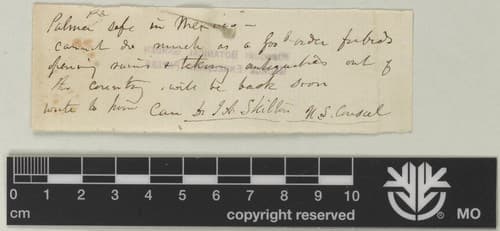 P.S.
Palmer safe in Mexico —
cannot do much as a gov't order forbids
opening ruins & taking antiquities out of
the country will be back soon
write to him Care Dr J. A. Skilton U.S. Consul
0 1 2 3 4 5 6 7 8 9 10
cm copyright reserved MO